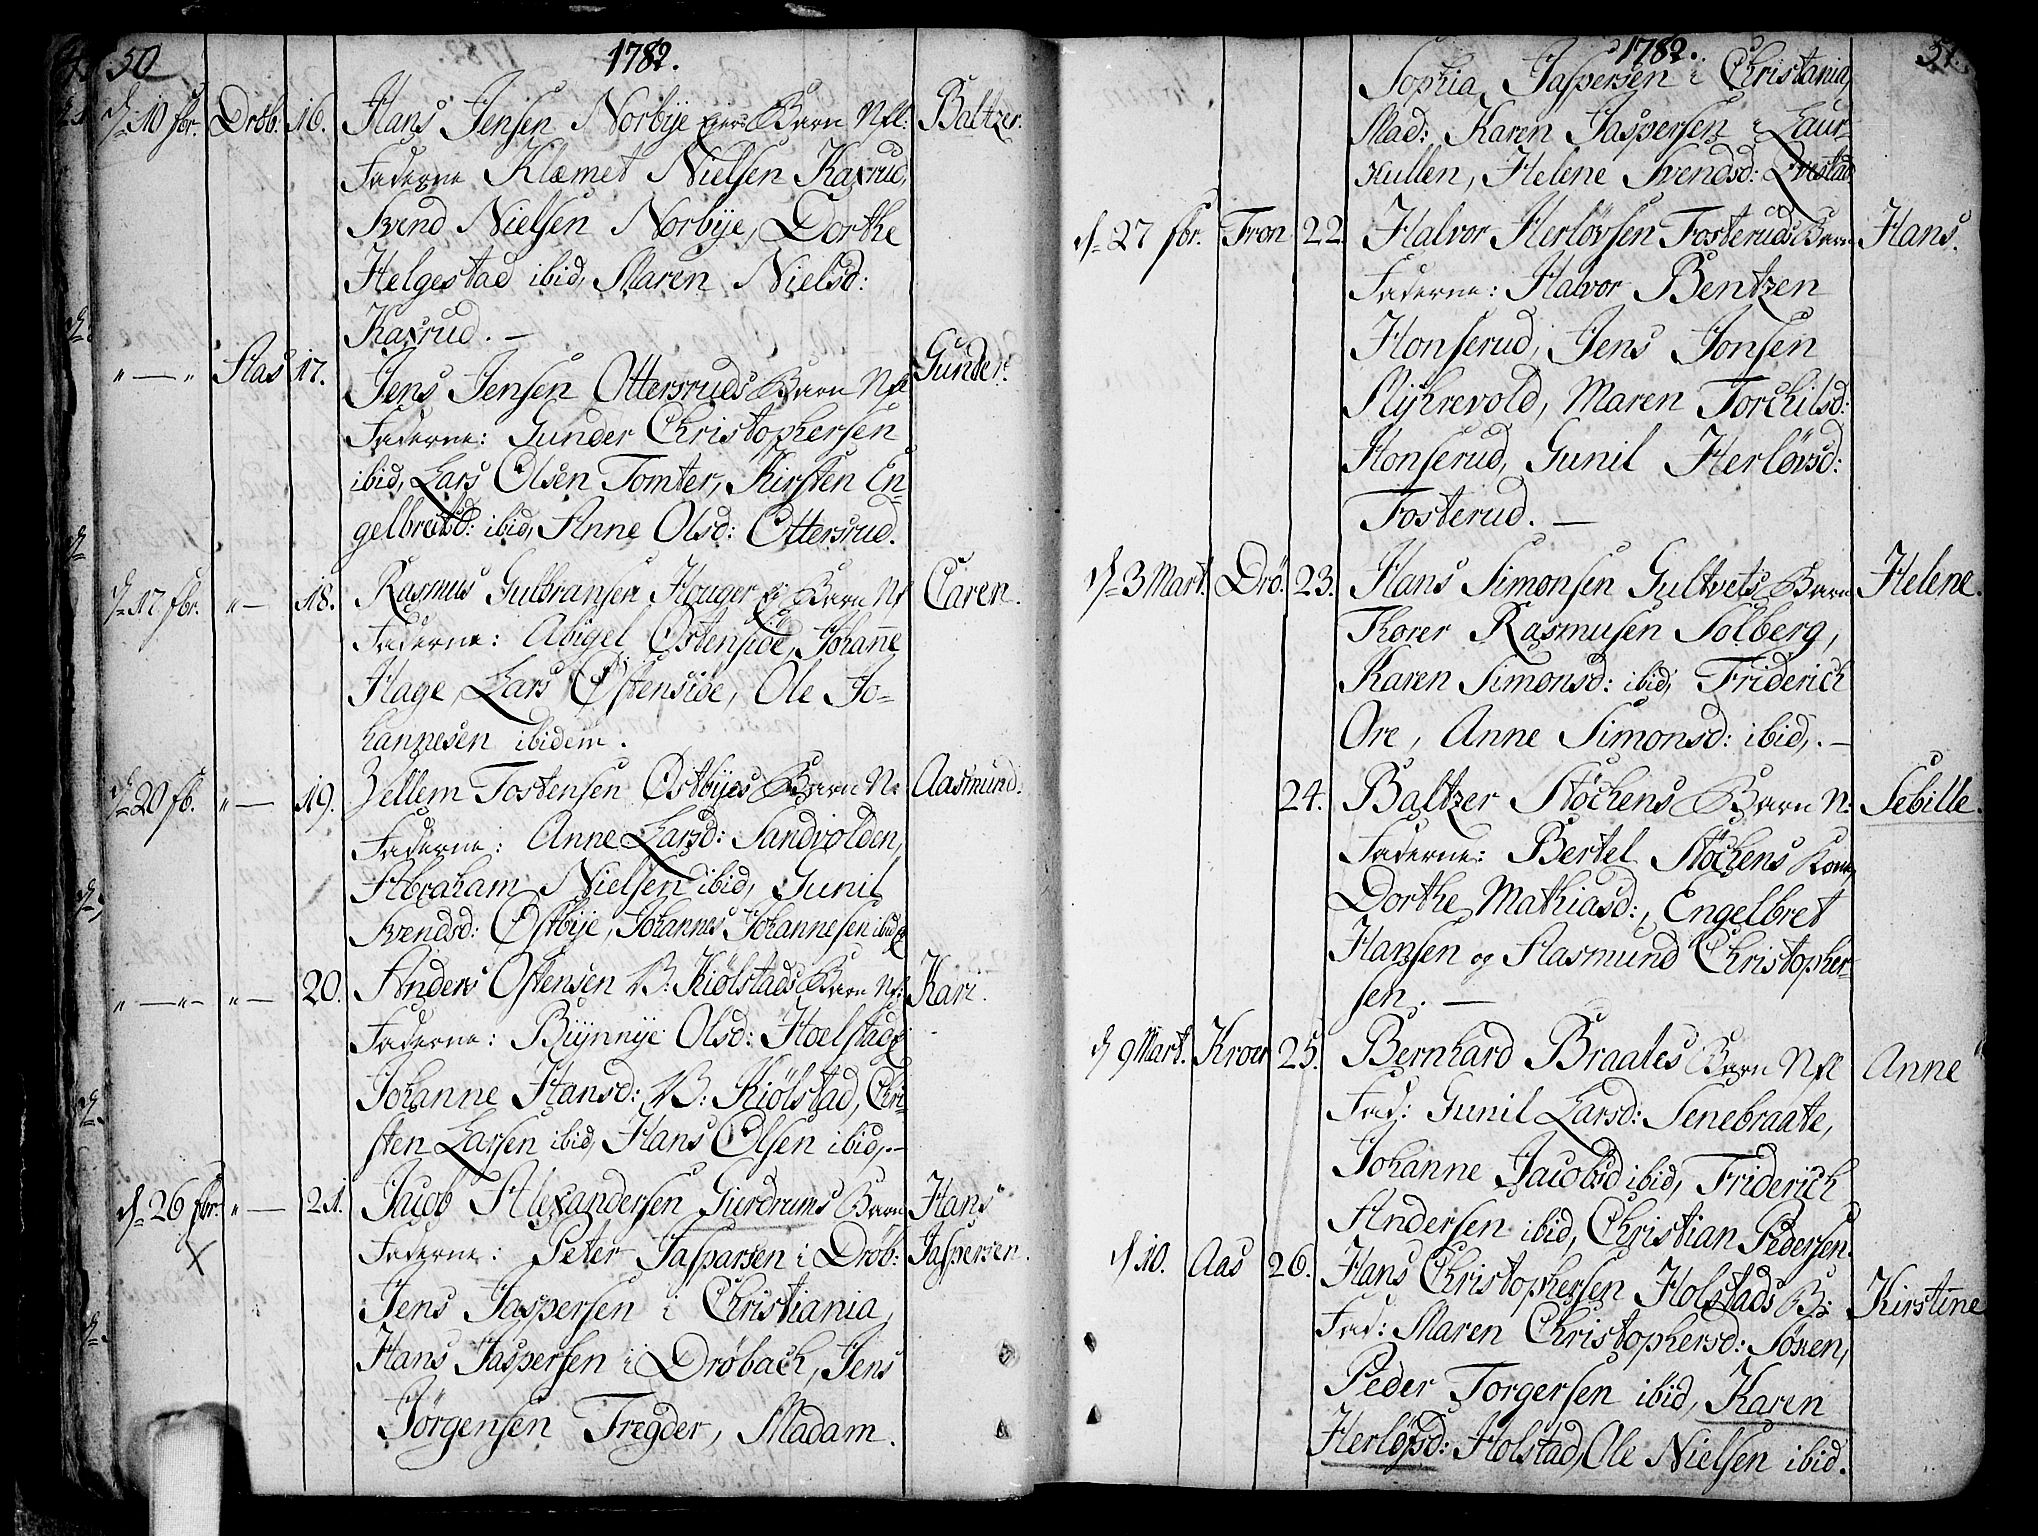 50
1782.
d. 10 fbr. Drøb. 16. Hans Jensen Norbÿe Barn Nfl: Baltzer.
Faderne Klæmet Nielsen Kaxrud,
Svend Nielsen Norbÿe, Dorthe
Helgestad ibid, Maren Nielsd:
Kaxrud. —
" — " Aas 17. Jens Jensen Ottersruds Barn Nfl Gunder.
Faderne: Gunder Christophersen
ibid, Lars Olsen Tomter, Kirsten En-
gelbreitsd: ibid, Anne Olsd: Ottersrud.
d. 17 fbr. " — 18. Rasmus Gulbransen Houger Barn Nf Caren.
Faderne: Abigel Østensiøe, Johanne
Hage, Lars Østensiøe, Ole Jo-
hannesen ibidem.
d. 20 fb. " — 19. Zellem Tostensen Østbÿes Barn N: Aasmund.
Faderne: Anne Larsd: Sandvolden,
Abraham Nielsen ibid, Gunil
Svendsd: Østbÿe, Johannes Johannesen ibid
" — " — " — 20. Anders Østensen B: Kiølstads Barn Nf: Kari.
Faderne: Bÿnnÿe Olsd: Hoelstad,
Johanne Hansd: B: Kiølstad, Chri-
sten Larsen ibid, Hans Olsen ibid. —
d. 26 fbr. " — 21. Jacob Alexandersen Gierdrums Barn Hans
X Faderne: Peter Jasparsen i Drøb: Jaspersen.
Jens Jaspersen i Christiania,
Hans Jaspersen i Drøbach, Jens
Jörgensen Tregder, Madam.
1782.
51.
Sophia Jaspersen i Christania,
Mad: Karen Jaspersen i Laur-
kullen, Helene Svendsd: Qvestad
d. 27 fbr. Fron 22. Halvor Herløvsen Fosteruds Barn Hans.
Faderne: Halvor Bentzen
Honserud, Jens Jonsen
Mÿhrevold, Maren Torchilsd:
Honserud, Gunil Herløvsd:
Fosterud. —
d. 3 Mart. Drø. 23. Hans Simonsen Gultvets Barn Helene.
Thorer Rasmusen Solberg,
Karen Simonsd: ibid, Friderich
Ore, Anne Simonsd: ibid. —
24. Baltzer Støchens Barn N: Sebille.
Faderne: Bertel Støchens Kone,
Dorthe Mathiasd:, Engelbret
Hansen og Aasmund Christopher-
sen. —
d. 9 Mart. Kroer 25. Bernhard Braates Barn Nfl Anne
Fad: Gunil Larsd: Senebraate,
Johanne Jacobsd ibid, Friderich
Andersen ibid, Christian Pedersen.
d. 10. Aas 26. Hans Christophersen Holstads B: Kirstine
Fad: Maren Christophersd: Soxen,
Peder Torgersen ibid, Karen
Herløfsd: Holstad, Ole Nielsen ibid.